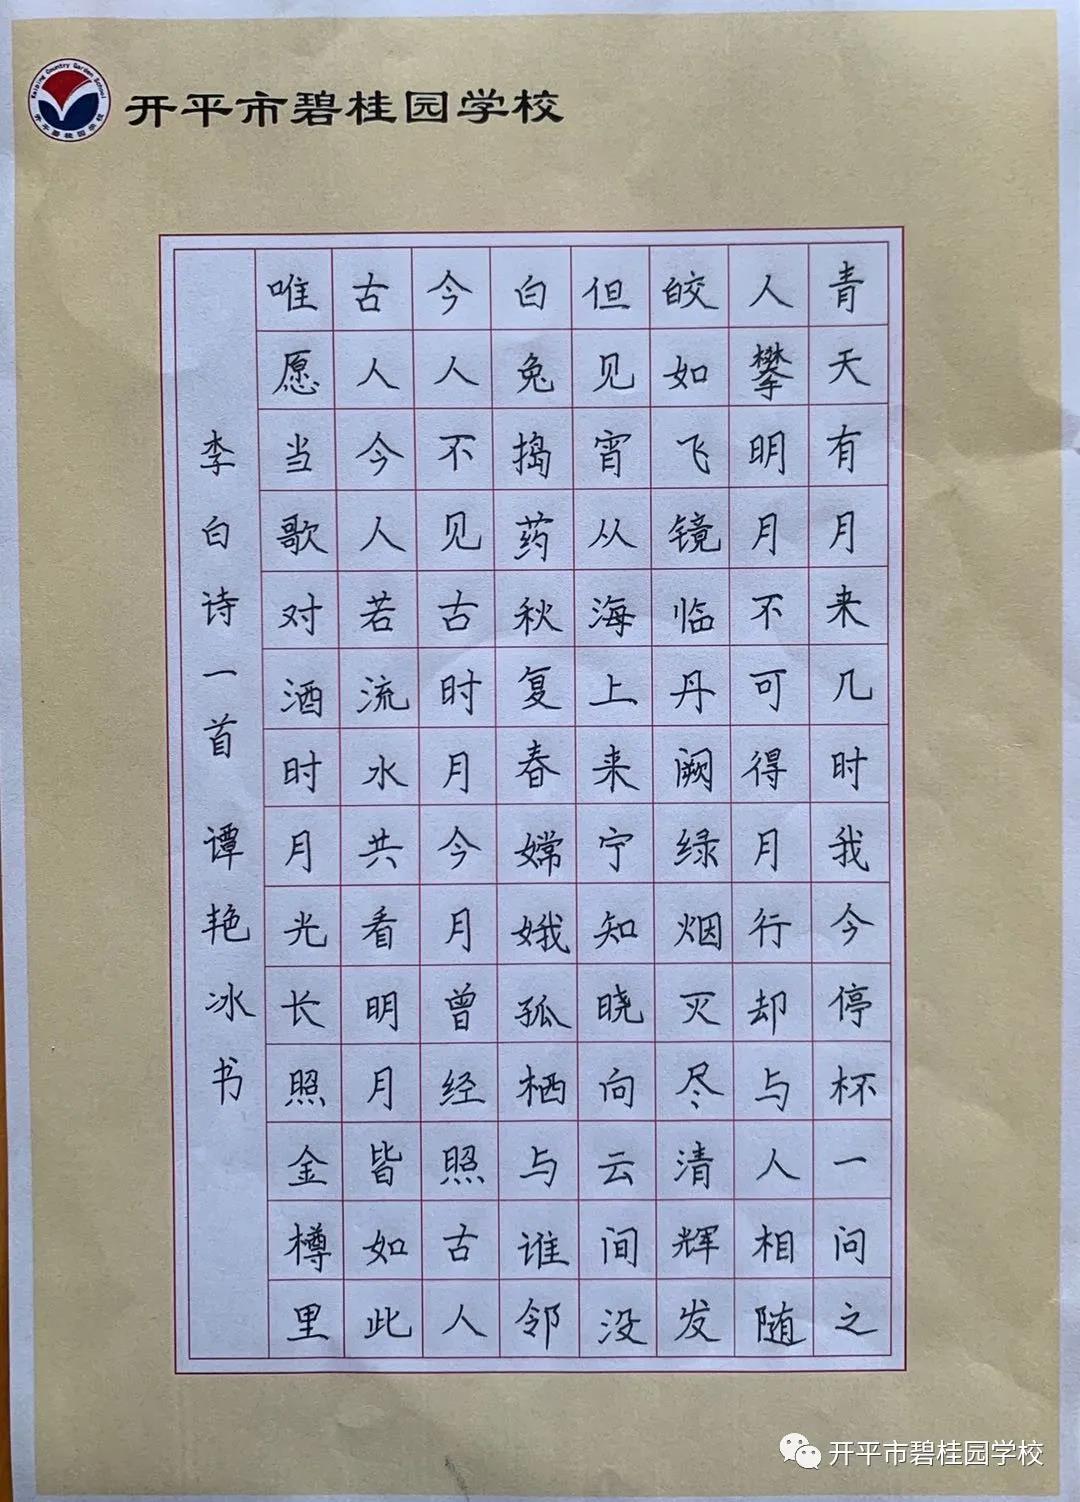 Kaiping Country Garden School
开平碧桂园学校
开平市碧桂园学校
青天有月来几时我今停杯一问之
人攀明月不可得月行却与人相随
皎如飞镜临丹阙绿烟灭尽清辉发
但见宵从海上来宁知晓向云间没
白兔捣药秋复春嫦娥孤栖与谁邻
今人不见古时月今月曾经照古人
古人今人若流水共看明月皆如此
唯愿当歌对酒时月光长照金樽里
李白诗一首 谭艳冰书
开平市碧桂园学校